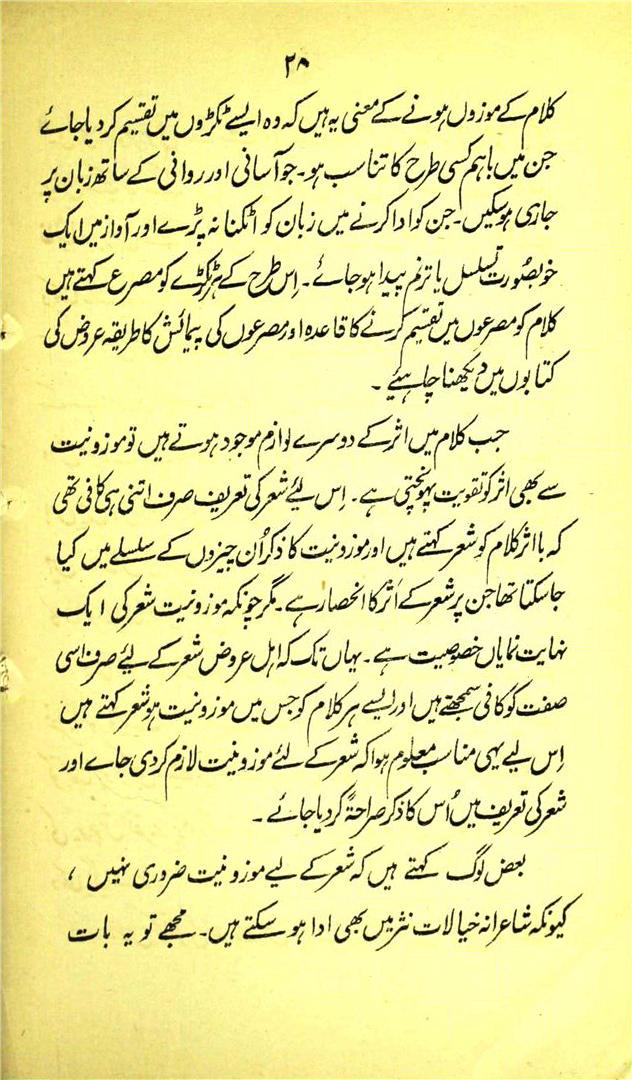 ۲۸
کلام کے موزوں ہونے کے معنی یہ ہیں کہ وہ ایسے ٹکڑوں میں تقسیم کر دیا جائے
جن میں باہم کسی طرح کا تناسب ہو۔ جو آسانی اور روانی کے ساتھ زبان پر
جاری ہو سکیں۔ جن کو ادا کرنے میں زبان کو اٹکنا نہ پڑے اور آواز میں ایک
خوبصورت تسلسل یا ترنم پیدا ہو جائے۔ اِس طرح کے ہر ٹکڑے کو مصرع کہتے ہیں
کلام کو مصرعوں میں تقسیم کرنے کا قاعدہ اور مصرعوں کی پیمائش کا طریقہ عروض کی
کتابوں میں دیکھنا چاہئیے ۔
جب کلام میں اثر کے دوسرے لوازم موجود ہوتے ہیں تو موزونیت
سے بھی اثر کو تقویت پہونچتی ہے۔ اِس لیئے شعر کی تعریف صرف اتنی ہی کافی تھی
کہ با اثر کلام کو شعر کہتے ہیں اور موزونیت کا ذکر اُن چیزوں کے سلسلے میں کیا
جا سکتا تھا جن پر شعر کے اَثر کا انحصار ہے۔ مگر چونکہ موزونیت شعر کی ایک
نہایت نمایاں خصوصیت ہے۔ یہاں تک کہ اہل عروض شعر کے لیئے صرف اسی
صفت کو کافی سمجھتے ہیں اور ایسے ہر کلام کو جس میں موزونیت ہو شعر کہتے ہیں
اِس لیے یہی مناسب معلوم ہوا کہ شعر کے لئے موزونیت لازم کر دی جاے اور
شعر کی تعریف میں اُس کا ذکر صراحۃً کر دیا جائے ۔
بعض لوگ کہتے ہیں کہ شعر کے لیے موزونیت ضروری نہیں ،
کیونکہ شاعرانہ خیالات نثر میں بھی ادا ہو سکتے ہیں۔ مجھے تو یہ بات